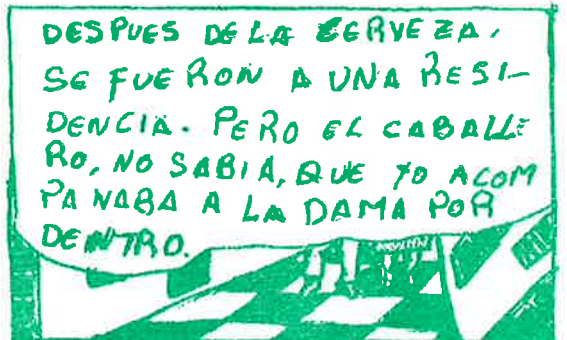 DESPUES DE LA CERVEZA,
SE FUERON A UNA RESI-
DENCIA. PERO EL CABALLE
RO, NO SABIA, QUE YO ACOM
PANABA A LA DAMA POR
DENTRO.